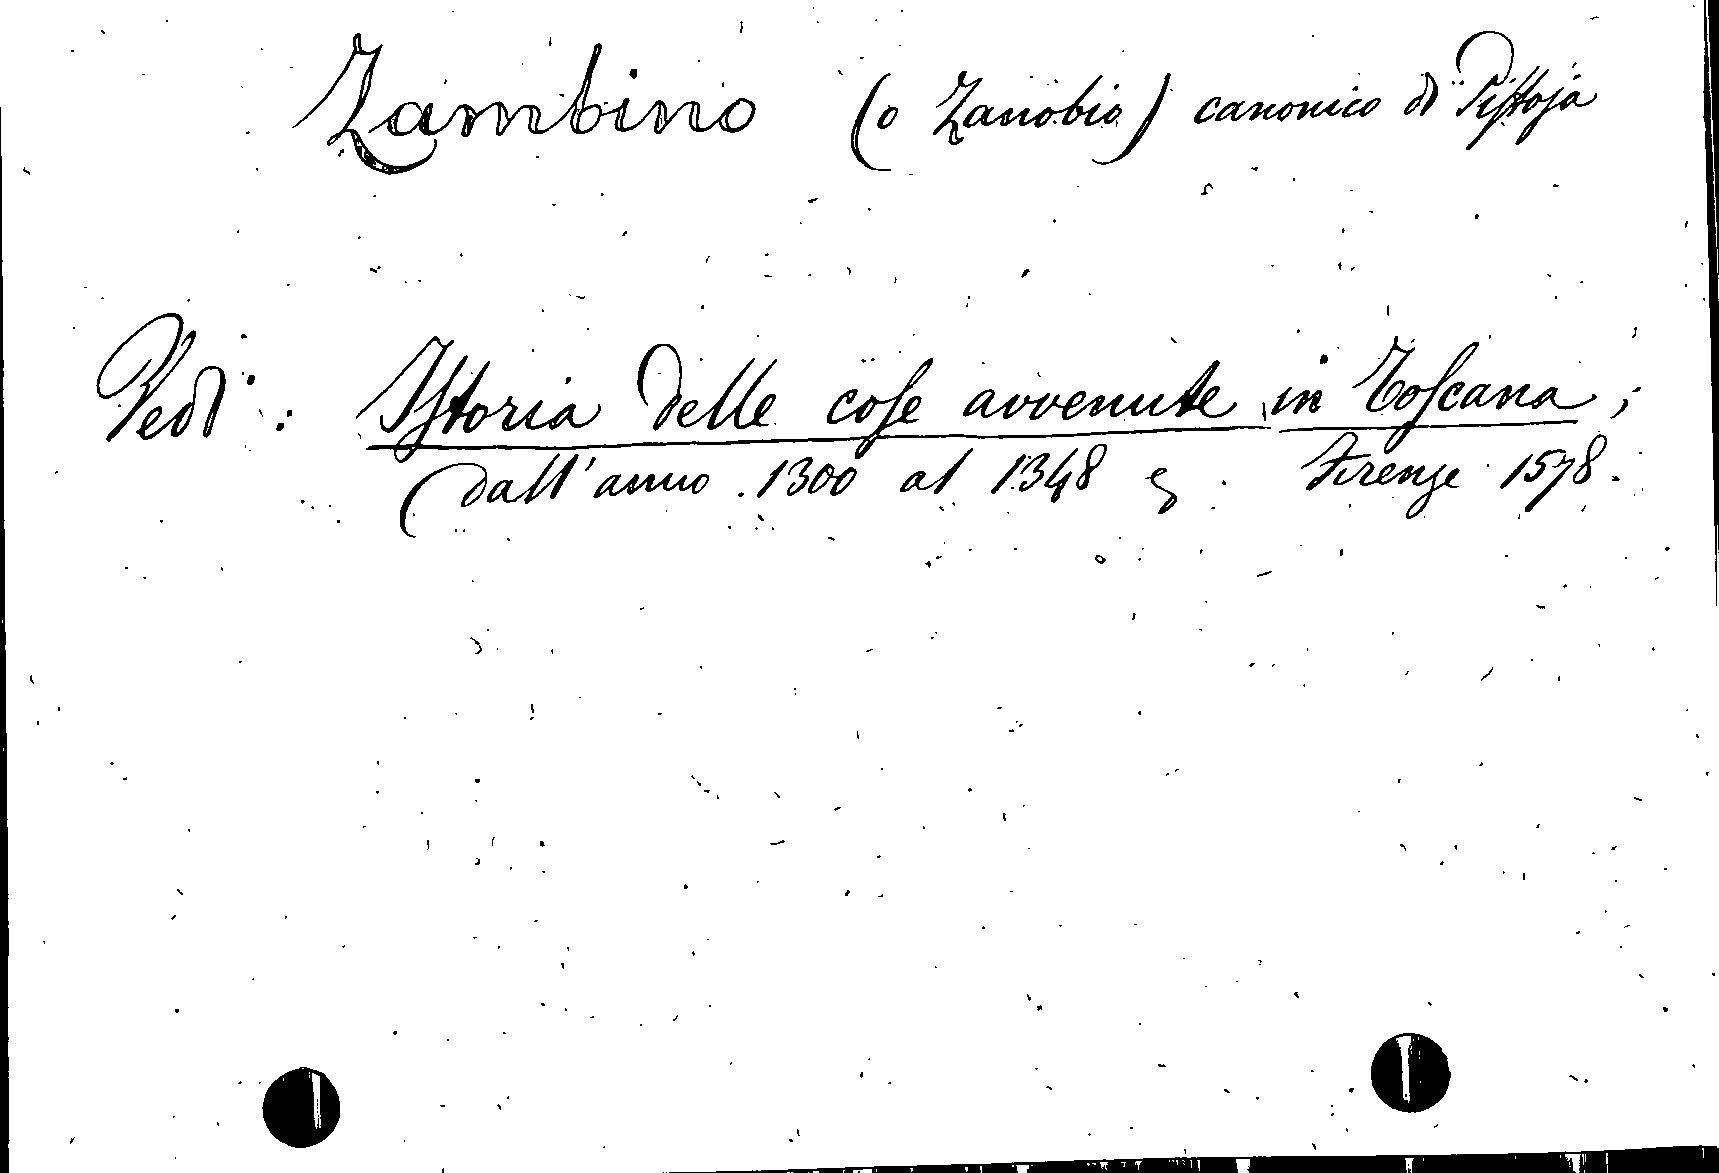 Zambino (o Zanobio) canonico di Piſtoja
Vedi: Iſtoria delle coſe avvenute in Toſcana;
dall'anno 1300 al 1348 Firenze 1578.